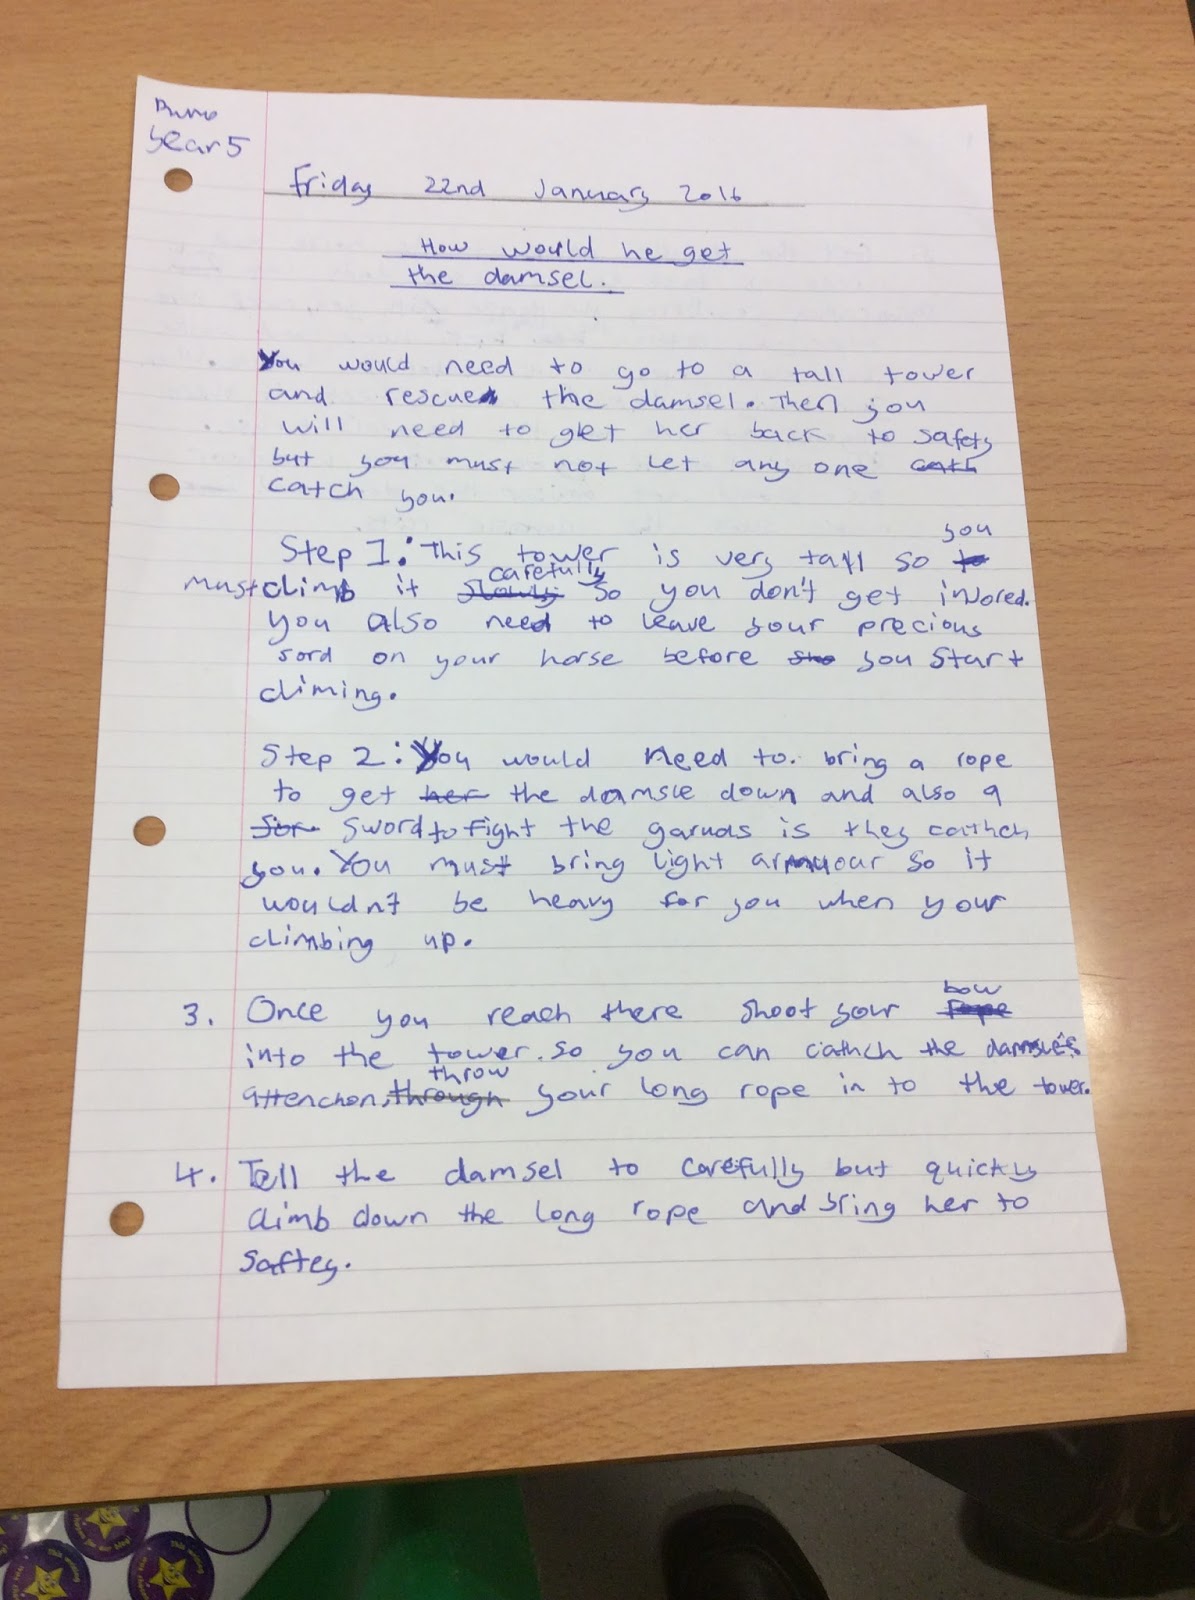 year 5
Friday 22nd January 2016
How would he get
the damsel.
You would need to go to a tall tower
and rescue the damsel. Then you
will need to get her back to safety
but you must not let any one cath
catch you.
you
Step 1: This tower is very tall so to
carefully
must climb it slowly so you don't get injored.
you also need to leave your precious
sord on your horse before sta you start
climing.
Step 2: You would need to. bring a rope
to get her the damsle down and also a
sor sword to fight the garuds is they cathch
you. You must bring light armuour so it
wouldn't be heavy for you when your
climbing up.
bow
3. Once you reach there shoot your rope
into the tower. so you can cathch the damsle's
throw
attenchon, through your long rope in to the tower.
4. Tell the damsel to carefully but quickly
climb down the long rope and bring her to
saftey.